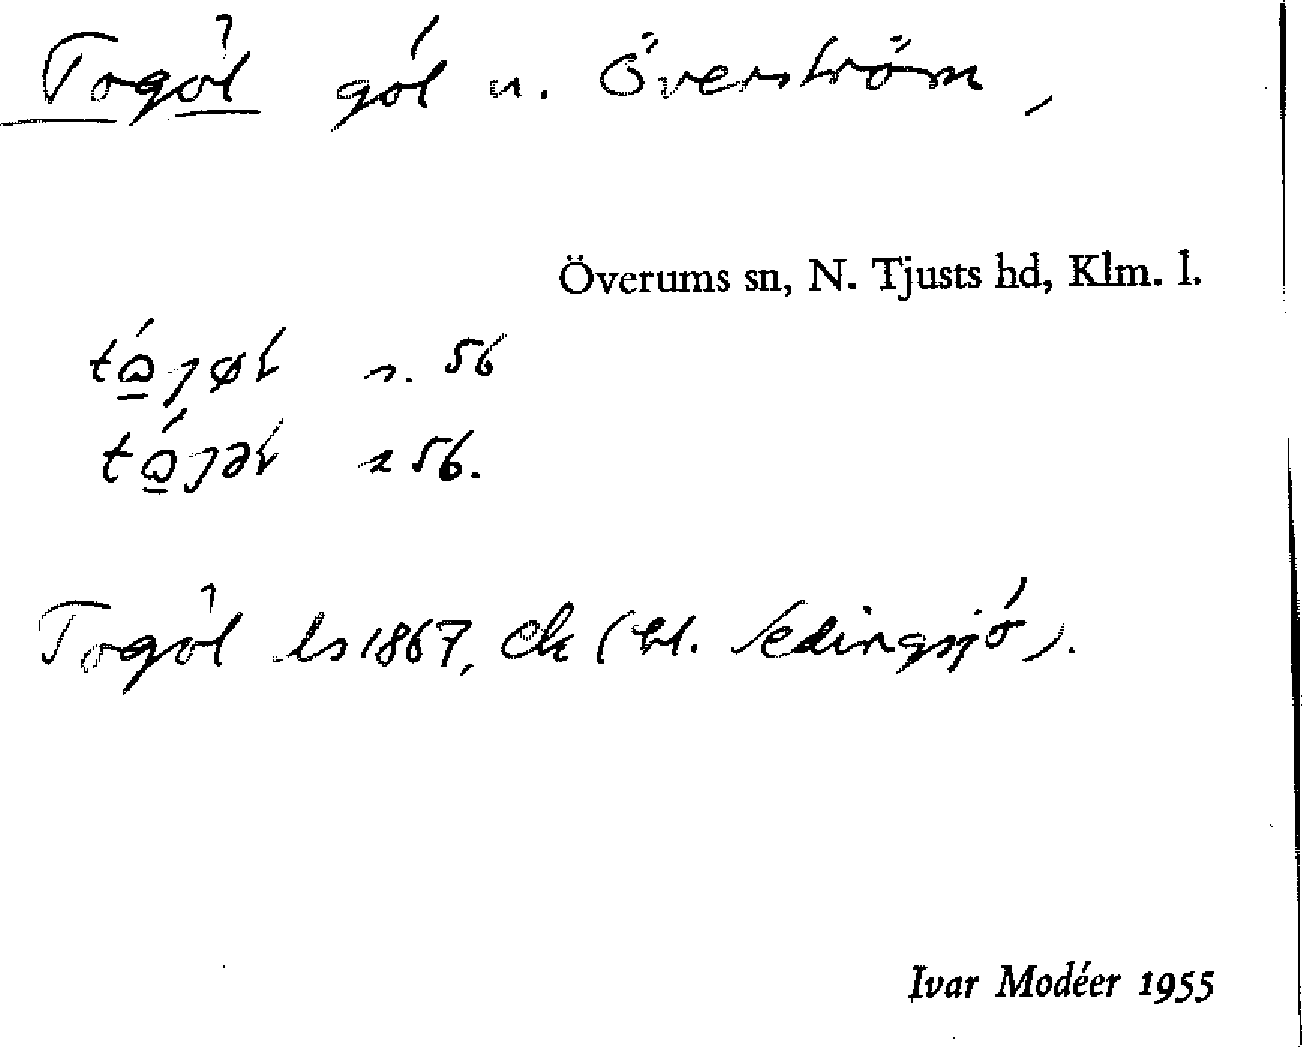 Togöl göl u. Överström,
Överums sn, N. Tjusts hd, Klm. l.
56
56.
Togöl ls 1867, ek (bl. Edingsjö).
Ivar Modéer 1955